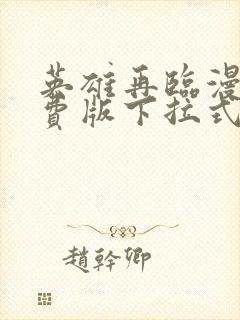 英雄再臨漫
費版下拉式
趙幹卿